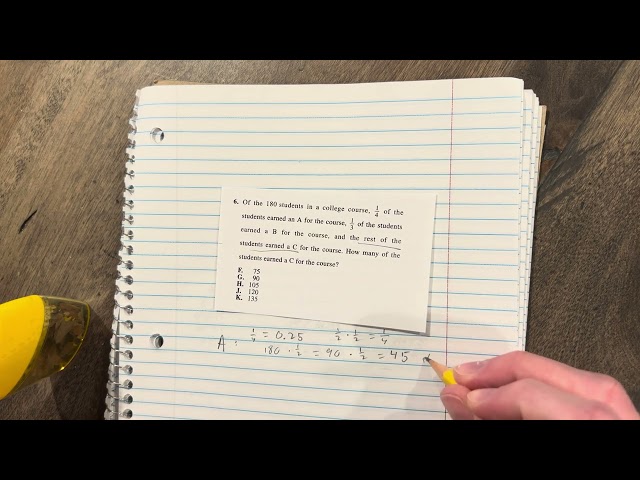 6. Of the 180 students in a college course, 1/4 of the
students earned an A for the course, 1/3 of the students
earned a B for the course, and the rest of the
students earned a C for the course. How many of the
students earned a C for the course?
F. 75
G. 90
H. 105
J. 120
K. 135
A: 1/4 = 0.25 1/2 · 1/2 = 1/4
180 · 1/2 = 90 · 1/2 = 45